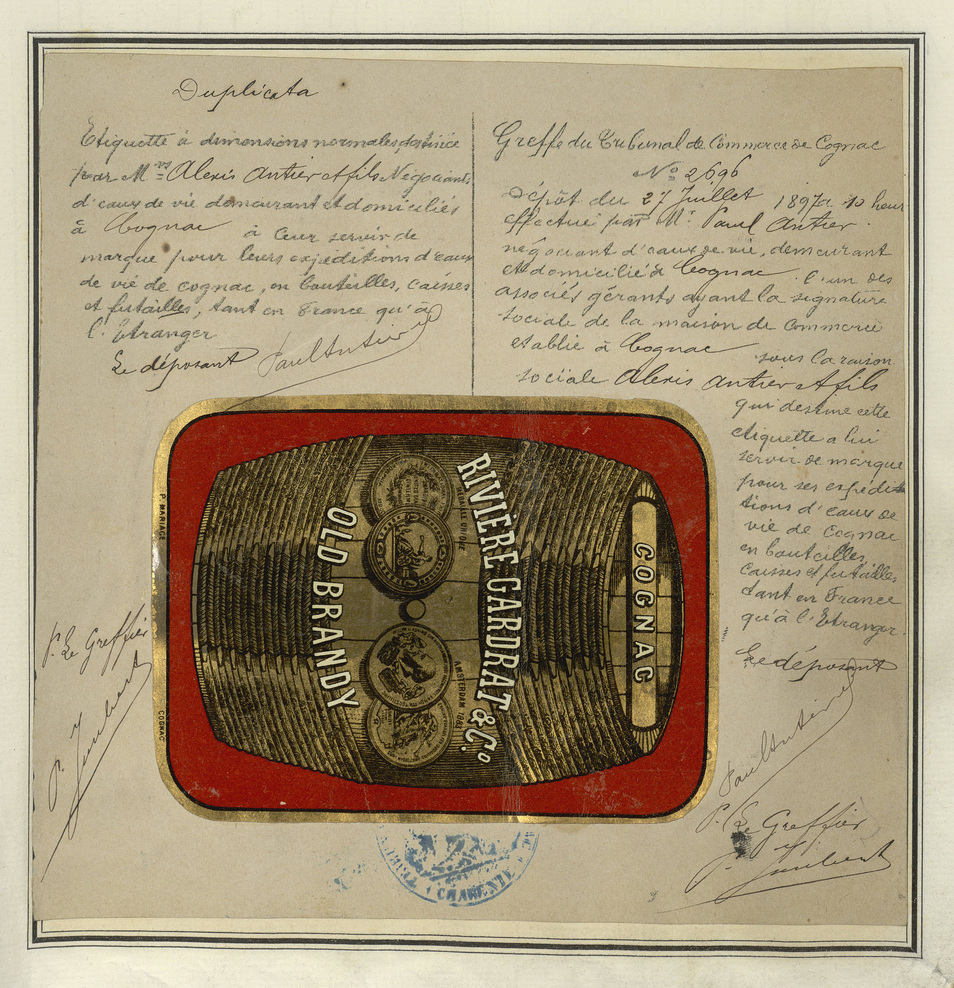 Duplicata
Etiquette à dimensions normales destinée
par Mrs Alexis Antier et fils Négociants
d'eaux de vie demeurant et domiciliés
à Cognac à leur servir de
marque pour leurs expéditions d'eaux
de vie de cognac, en bouteilles, caisses
et futailles, tant en France qu'à
l'Etranger
Le déposant Paul Antier
Greffe du Tribunal de Commerce de Cognac
No 2696
Dépôt du 27 Juillet 1897 a 10 heur
effectué par Mr. Paul Antier
négociant d'eaux de vie, demeurant
et domicilié à Cognac. l'un des
associés gérants ayant la signature
sociale de la maison de Commerce
etablie à Cognac sous la raison
sociale Alexis Antier et fils
qui destine cette
etiquette a lui
servir de marque
pour ses expédi
tions d'eaux de
vie de Cognac
en bouteilles,
caisses et futailles,
tant en France
qu'à l'Etranger.
Le déposant
Paul Antier
P. Le Greffier
P. Joubert
P. Le Greffier
P. Joubert
COGNAC
RIVIÈRE GARDRAT & Co
OLD BRANDY
MEDAILLE UNIQUE
AMSTERDAM
P. MARIAGE
COGNAC
CHARENTE